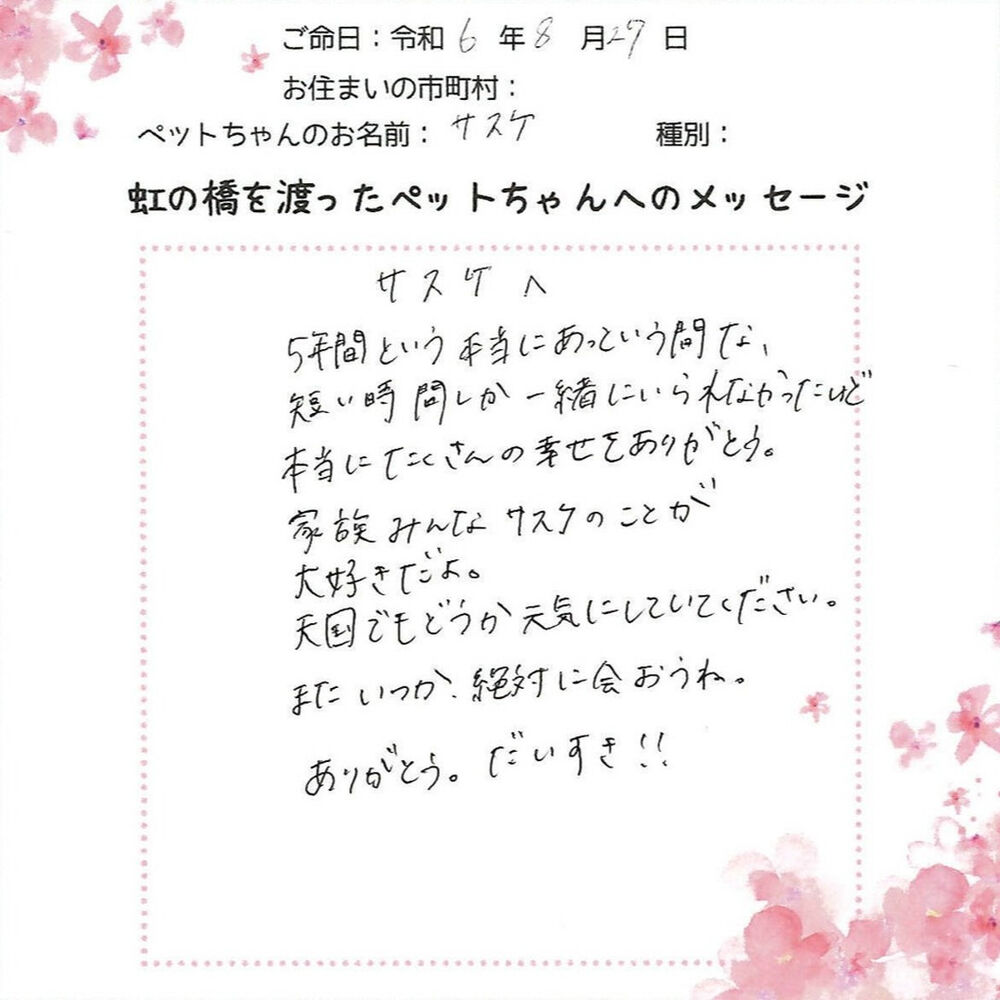 ご命日：令和 6 年 8 月 27 日
お住まいの市町村：
ペットちゃんのお名前： サスケ 種別：
虹の橋を渡ったペットちゃんへのメッセージ
サスケへ
5年間という本当にあっという間な、
短い時間しか一緒にいられなかったけど
本当にたくさんの幸せをありがとう。
家族みんなサスケのことが
大好きだよ。
天国でもどうか元気にしていてください。
またいつか、絶対に会おうね。
ありがとう。だいすき!!